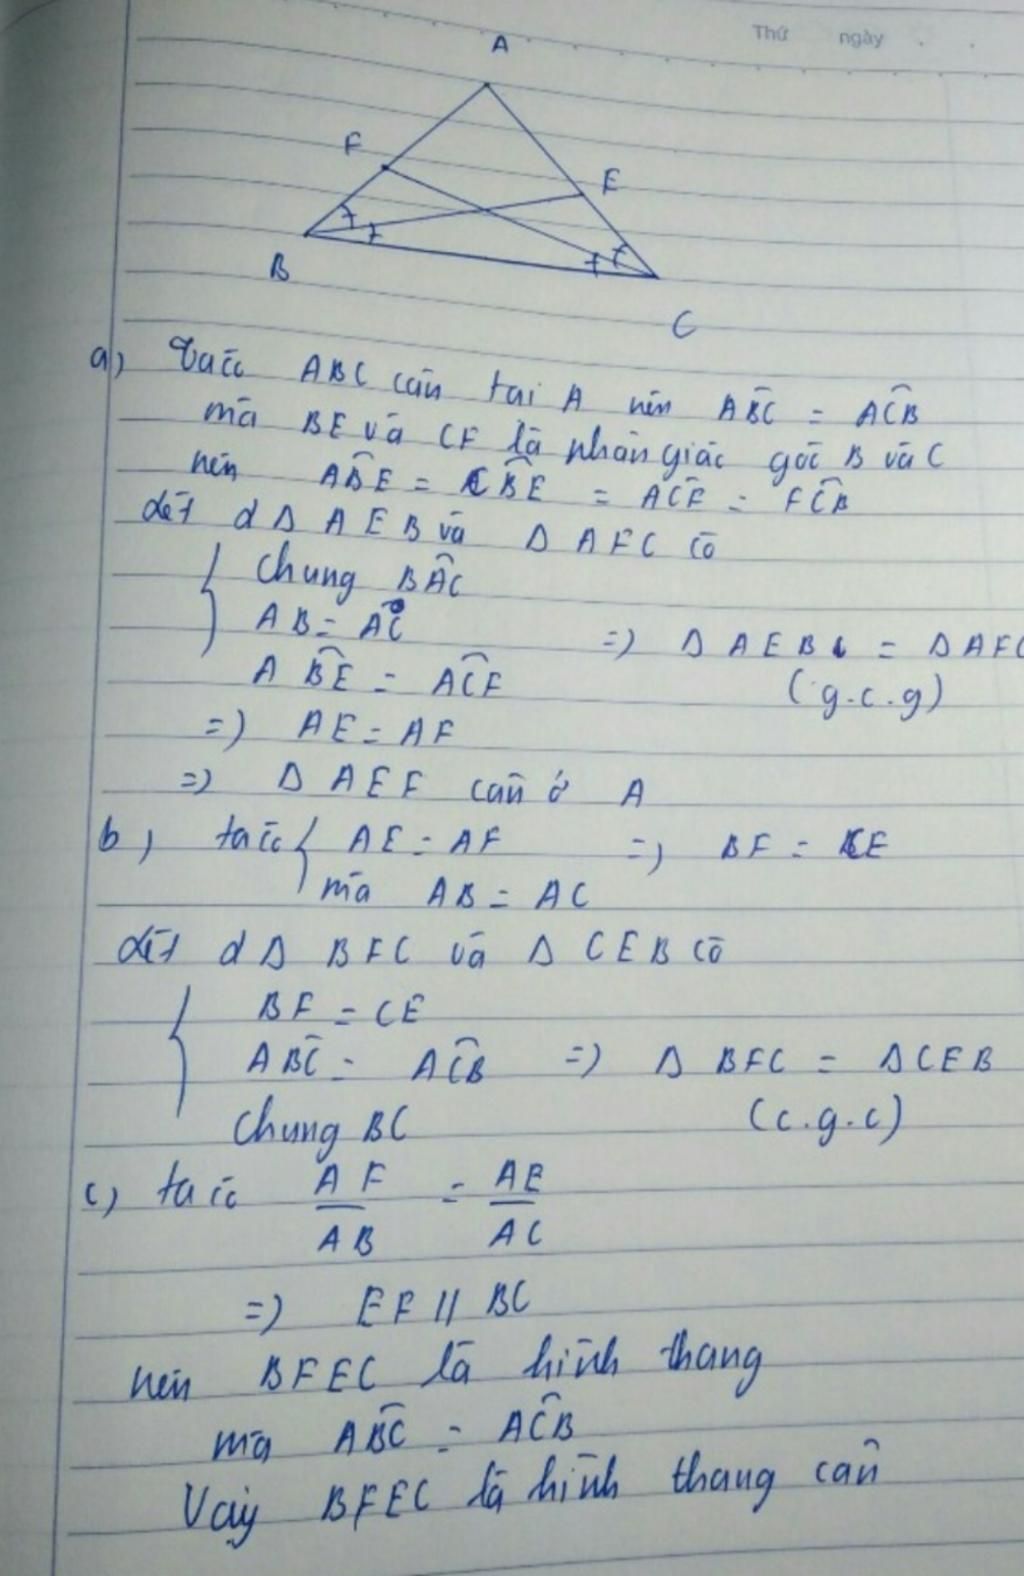 Thứ ngày
A
F
E
B
C
a) Ta có ABC cân tại A nên ABC = ACB
mà BE và CF là phân giác góc B và C
nên ABE = CBE = ACF = FCB
Xét d Δ AEB và Δ AFC có
Chung BAC
AB = AC => Δ AEB = Δ AFC
ABE = ACF (g.c.g)
=) AE = AF
=) Δ AEF cân ở A
b) ta có AE = AF =) BF = CE
mà AB = AC
Xét d Δ BFC và Δ CEB có
BF = CE
ABC = ACB =) Δ BFC = Δ CEB
Chung BC (c.g.c)
c) ta có AF/AB = AE/AC
=) EF // BC
nên BFEC là hình thang
mà ABC = ACB
Vậy BFEC là hình thang cân